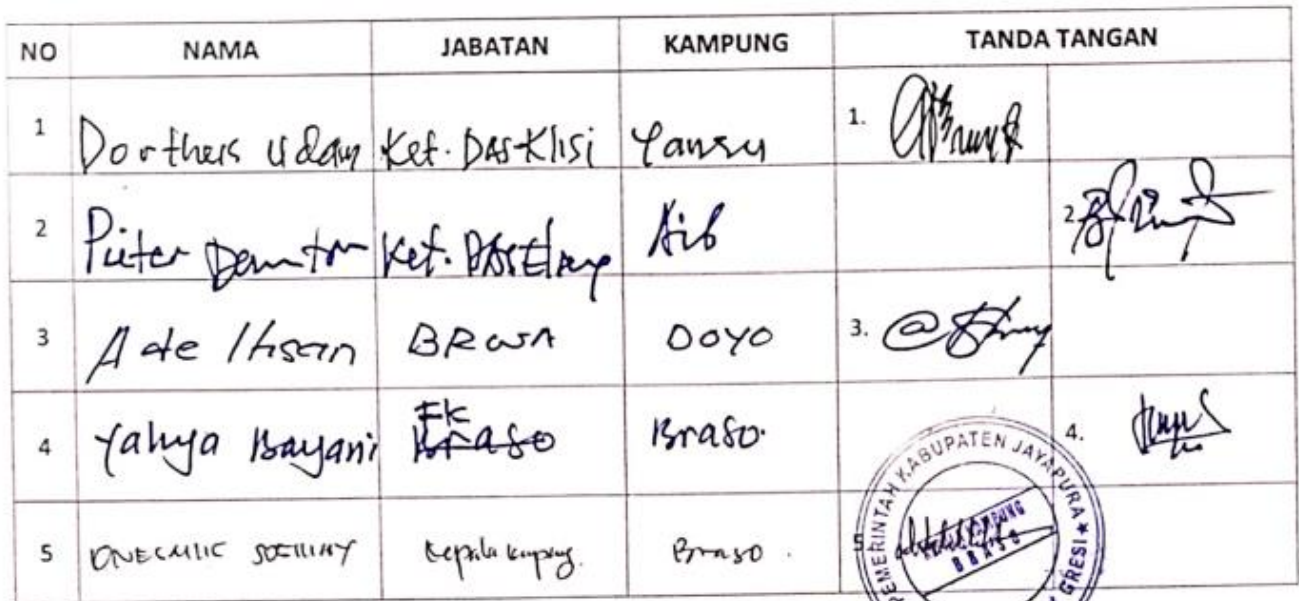 NO NAMA JABATAN KAMPUNG TANDA TANGAN
1 Dortheis Udam Ket. DAS Klisi Yansu 1.
2 Pieter Ket. DAS Aib 2.
3 Ade Ihsan BRWA DOYO 3.
4 Yahya Bayani FK Braso Braso. 4.
5 Kepala kampung. Braso. 5.
PEMERINTAH KABUPATEN JAYAPURA ★ GRESI
KAMPUNG
BRASO